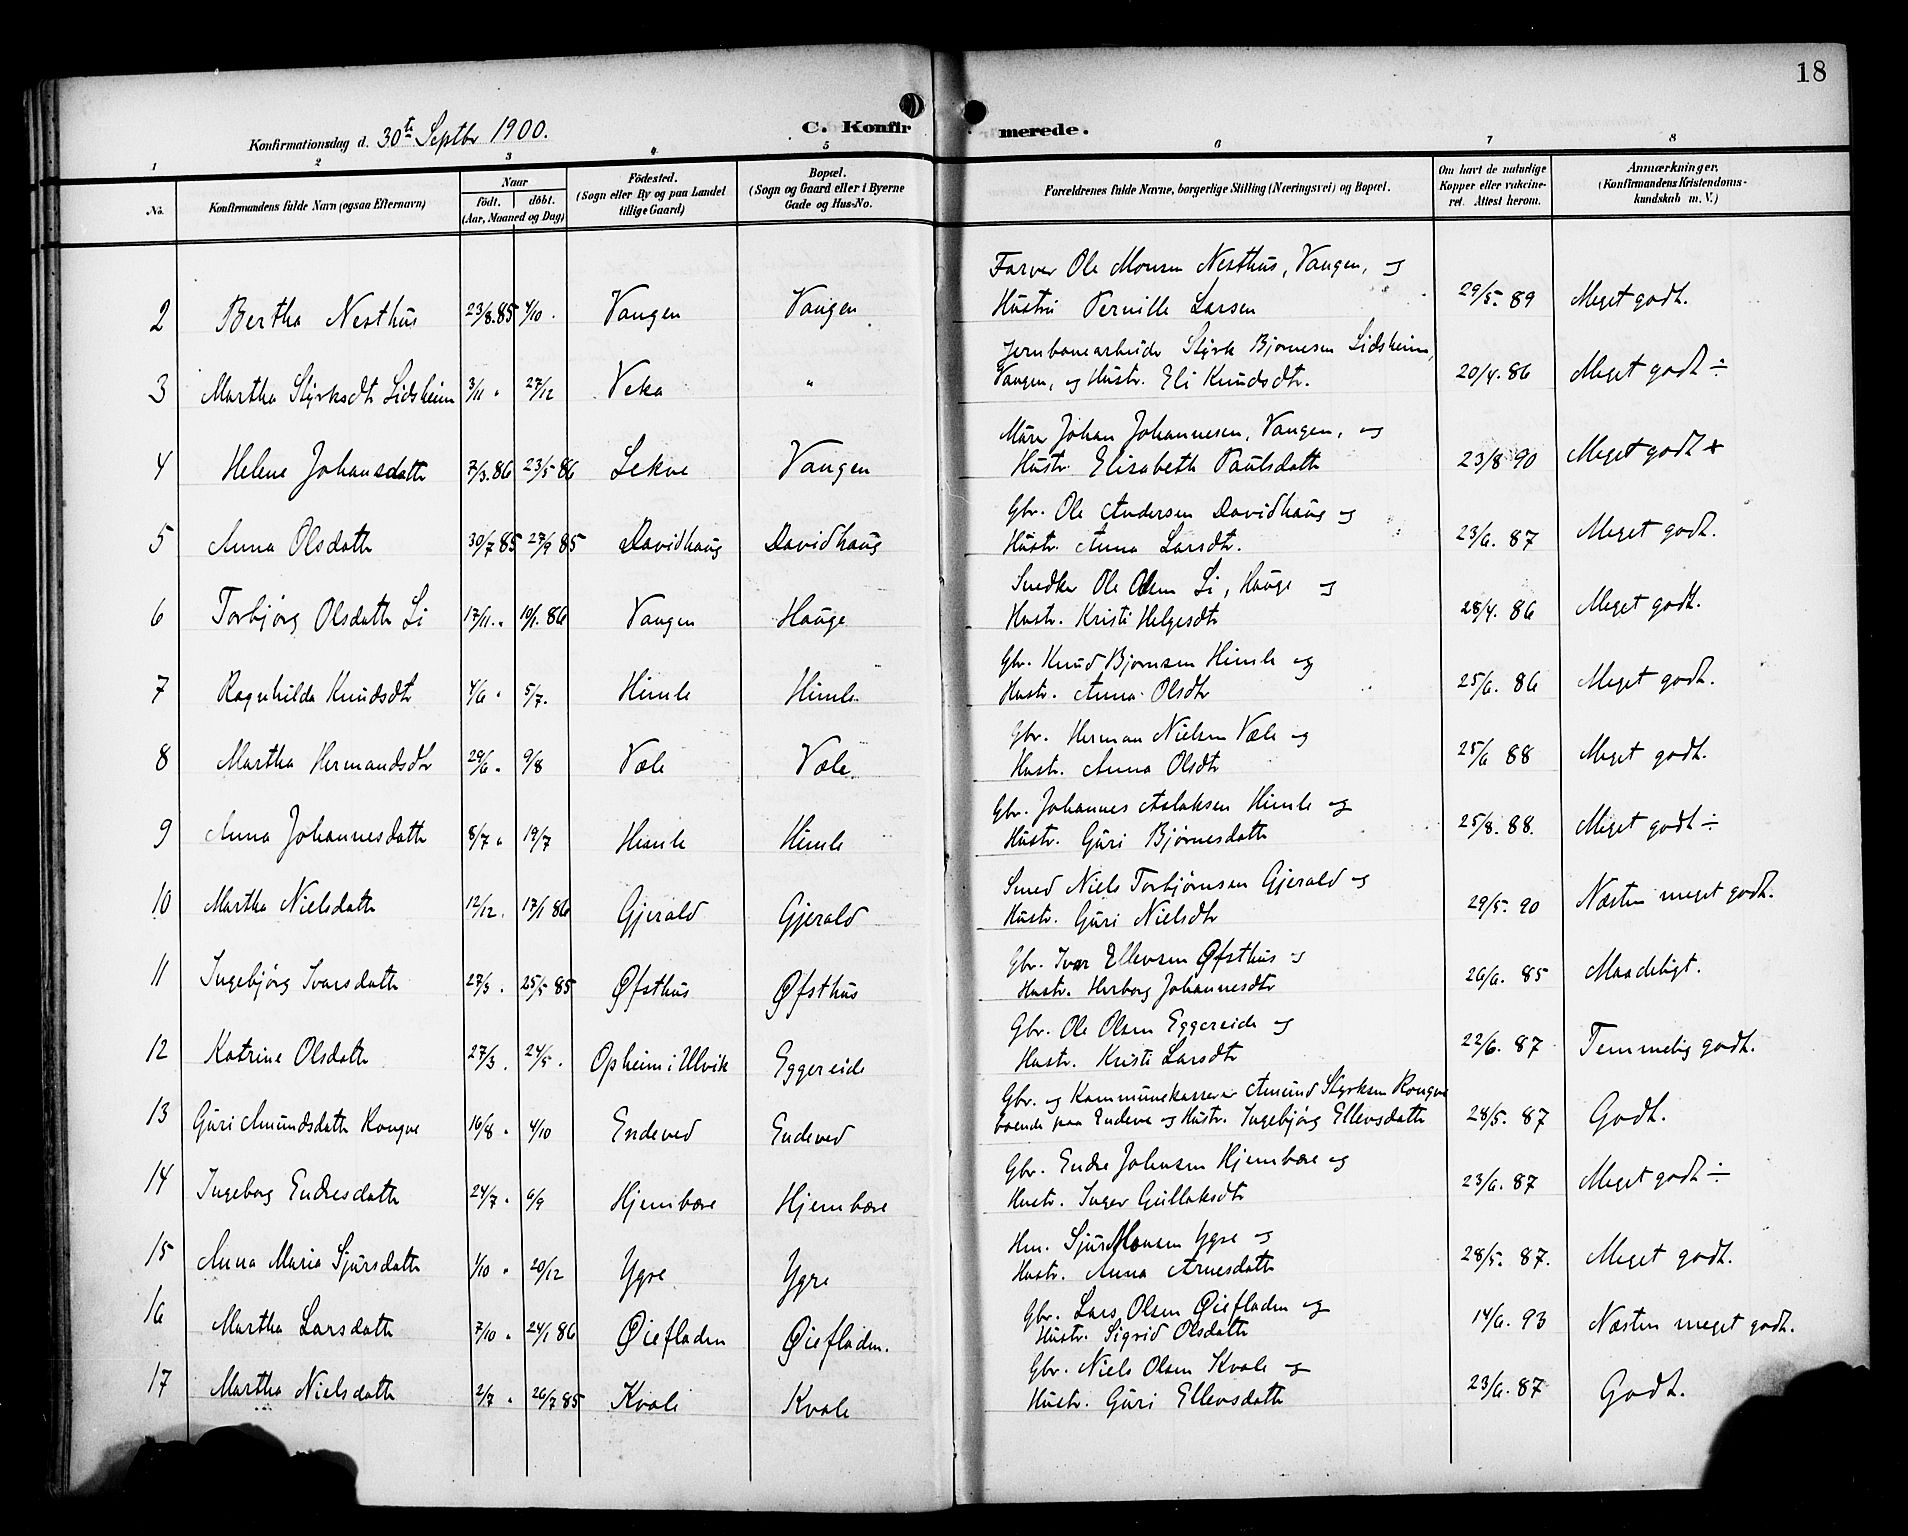 18
Konfirmationsdag d. 30te Septbr 1900. C. Konfirmerede.
1 2 3 4 5 6 7 8
No. Konfirmandens fulde Navn (ogsaa Efternavn) Naar födt. döbt. (Aar, Maaned og Dag) Födested. (Sogn eller By og paa Landet tillige Gaard) Bopæl. (Sogn og Gaard eller i Byerne Gade og Hus-No. Forældrenes fulde Navne, borgerlige Stilling (Næringsvei) og Bopæl. Om havt de naturlige Kopper eller vakcineret. Attest herom. Anmærkninger. (Konfirmandens Kristendomskundskab m. V.)
2 Bertha Nesthus 23/8.85 4/10. Vangen Vangen Farver Ole Monsen Nesthus, Vangen, og Hustru Pernille Larsen 29/5. 89 Meget godt.
3 Martha Styrksdtr Lidsheim 3/11 " 27/12 Veka " Jernbanearbeider Styrk Bjørnesen Lidsheim, Vangen, og Hustr. Eli Knudsdtr. 20/4. 86 Meget godt ÷
4 Helene Johansdatter 7/3.86 23/5 86 Lekve Vangen Murer Johan Johannesen, Vangen, og Hustr. Elisabeth Paulsdatter 23/8 90 Meget godt +
5 Anna Olsdatter 30/7 85 27/9 85 Davidhaug Davidhaug Gbr. Ole Andersen Davidhaug og Hustr. Anna Larsdtr. 23/6. 87 Meget godt.
6 Torbjørg Olsdatter Li 17/11. " 10/1. 86 Vangen Hauge Snedker Ole Olsen Li, Hauge og Hustr. Kristi Helgesdtr 28/4. 86 Meget godt.
7 Ragnhilda Knudsdtr 4/6 " 5/7. Himle Himle Gbr. Knud Bjørnsen Himle og Hustr. Anna Olsdtr 25/6. 86 Meget godt.
8 Martha Hermandsdtr 29/6 " 9/8 Væle Væle Gbr. Herman Nielsen Væle og Hustr. Anna Olsdtr 25/6 88 Meget godt.
9 Anna Johannesdatter 8/7 " 19/7 Himle Himle Gbr. Johannes Aslaksen Himle og Hustr. Guri Bjørnesdatter 25/8. 88. Meget godt ÷
10 Martha Nielsdatter 12/12. 17/1 86 Gjerald Gjerald Smed Niels Torbjørnsen Gjerald og Hustr. Guri Nielsdtr 29/5. 90 Næsten meget godt.
11 Ingebjørg Ivarsdatter 27/3 . 25/5 85 Øfsthus Øfsthus Gbr. Ivar Ellevsen Øfsthus og Hustr. Herborg Johannesdtr 26/6. 85 Maadeligt.
12 Katrine Olsdatter 27/3 . 24/5. Opheim i Ulvik Eggereide Gbr. Ole Olsen Eggereide og Hustr. Kristi Larsdtr 22/6. 87 Temmelig godt.
13 Guri Amundsdatter Rongve 16/8 " 4/10 Endeved Endeved Gbr. og Kommunekasserer Amund Styrksen Rongve boende paa Endeve og Hustr. Ingebjørg Ellevsdatter 28/5. 87 Godt.
14 Ingeborg Endresdatter 24/7 " 6/9 Hjembære Hjembære Gbr. Endre Johnsen Hjembære og Hustr. Inger Gullaksdtr 23/6. 87 Meget godt ÷
15 Anna Maria Sjursdatter 1/10 " 20/12 Ygre Ygre Hm. Sjur Monsen Ygre og Hustr. Anna Arnesdatter 28/5. 87. Meget godt.
16 Martha Larsdatter 7/10 " 24/1 86 Øiefladen Øiefladen. Gbr. Lars Olsen Øiefladen og Hustr. Sigrid Olsdatter 14/6. 93 Næsten meget godt.
17 Martha Nielsdatter 2/7 " 26/7 85 Kvale Kvale Gbr. Niels Olsen Kvale og Hustr. Guri Ellevsdatter 23/6. 87 Godt.